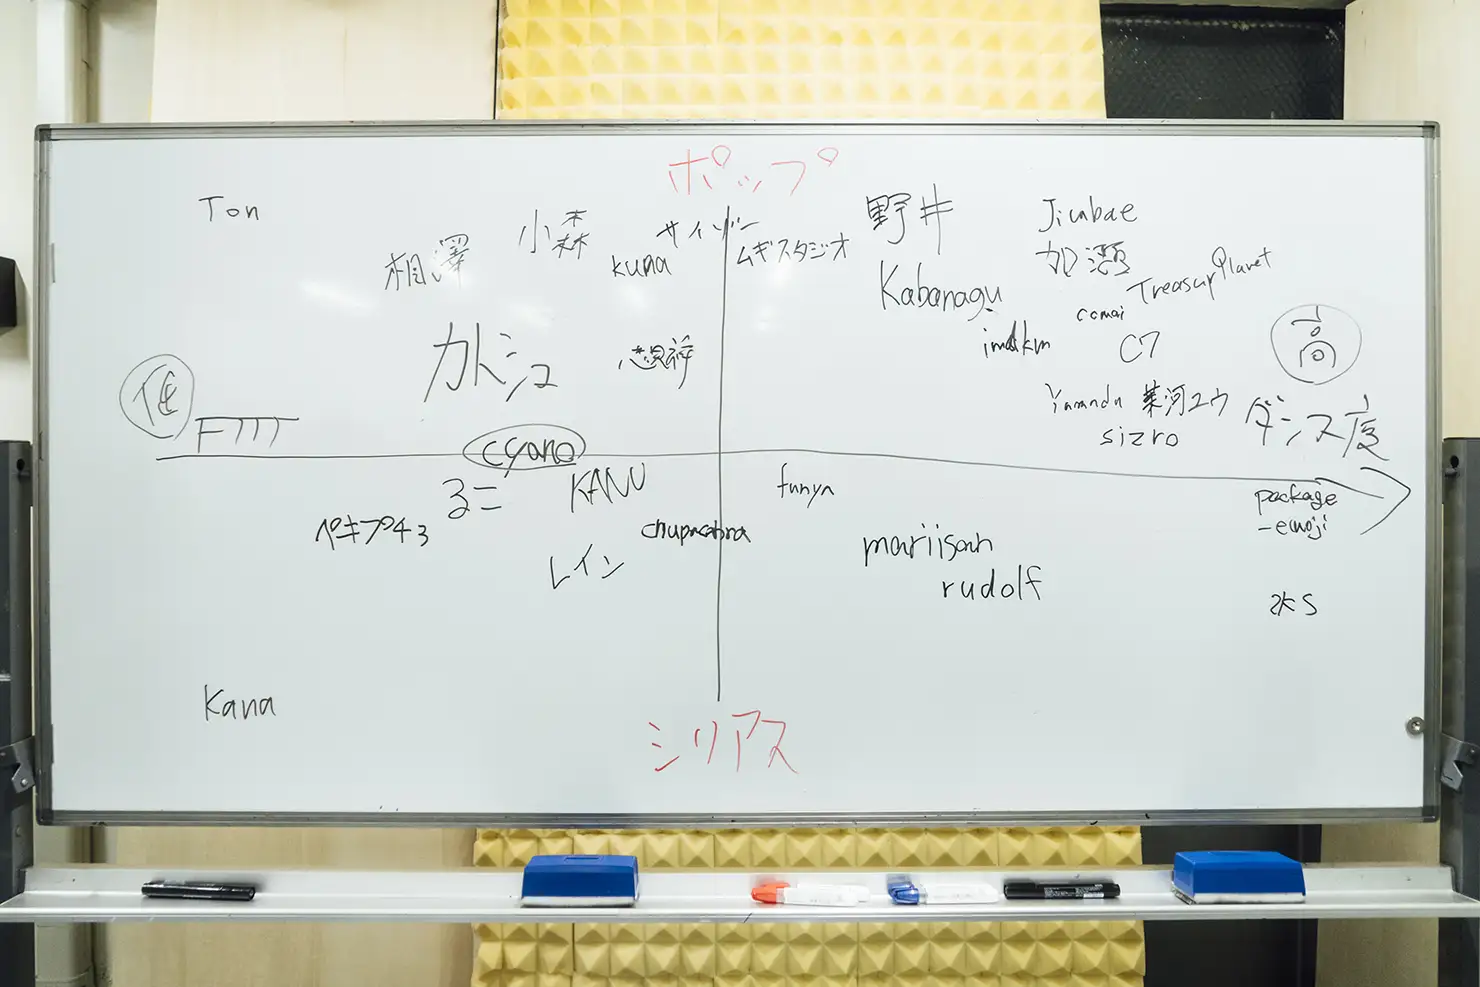 ポップ
Ton
小森
サイゾー
ムギスタジオ
野井
Jinbae
相澤
kuma
Kabanagu
加瀬
Treasur Planet
comai
imdkm
C7
高
カトシュ
想祥
低
Yamada 葉河ユウ
sizro
ダンス度
cyano
ミニ
KANU
funya
package
-emoji
ペキプチョ
chupacabra
レイン
mariisan
rudolf
水S
Kana
シリアス